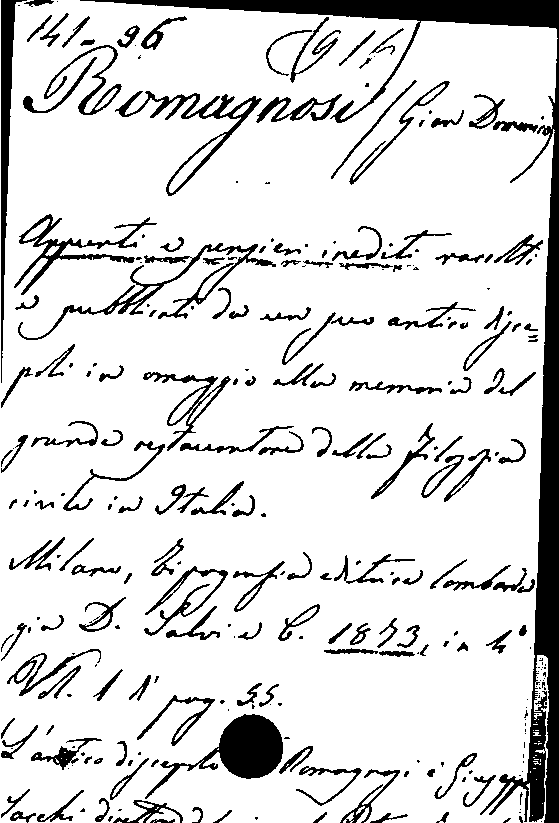 141-96 (914)
Romagnosi (Gian Domenico)
Appunti e pensieri inediti raccolti
e pubblicati da un suo antico disce=
poli in omaggio alla memoria del
grande restauratore della Filosofia
civile in Italia.
Milano, Tipografia editrice lombarda
già D. Salvi e C. 1873, in 4°
Vol. 1 di pag. 55.
L'antico discepolo Romagnosi è Giuseppe
Sacchi direttore